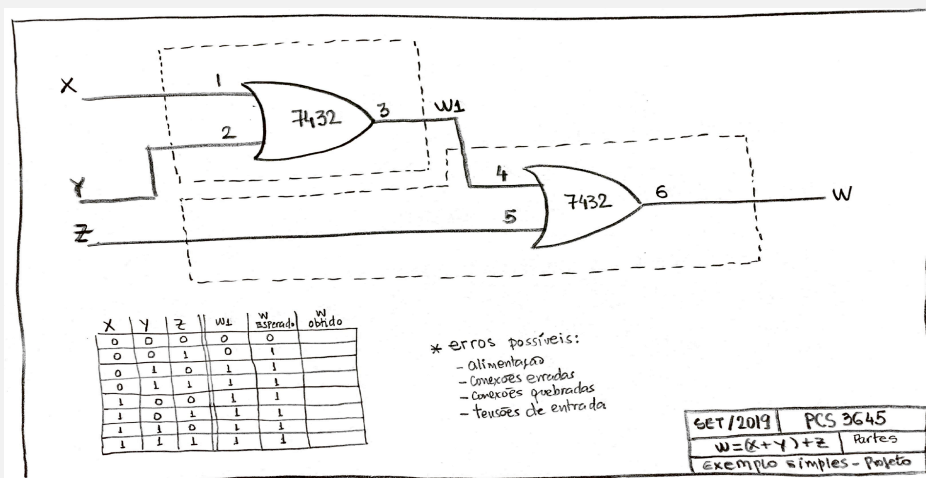 X
1
2
7432
3
W1
Y
Z
4
5
7432
6
W
X Y Z W1 W Esperado W obtido
0 0 0 0 0
0 0 1 0 1
0 1 0 1 1
0 1 1 1 1
1 0 0 1 1
1 0 1 1 1
1 1 0 1 1
1 1 1 1 1
* erros possíveis:
- alimentação
- conexões erradas
- conexões quebradas
- tensões de entrada
SET/2019 PCS 3645
W=(X+Y)+Z Partes
Exemplo simples - Projeto